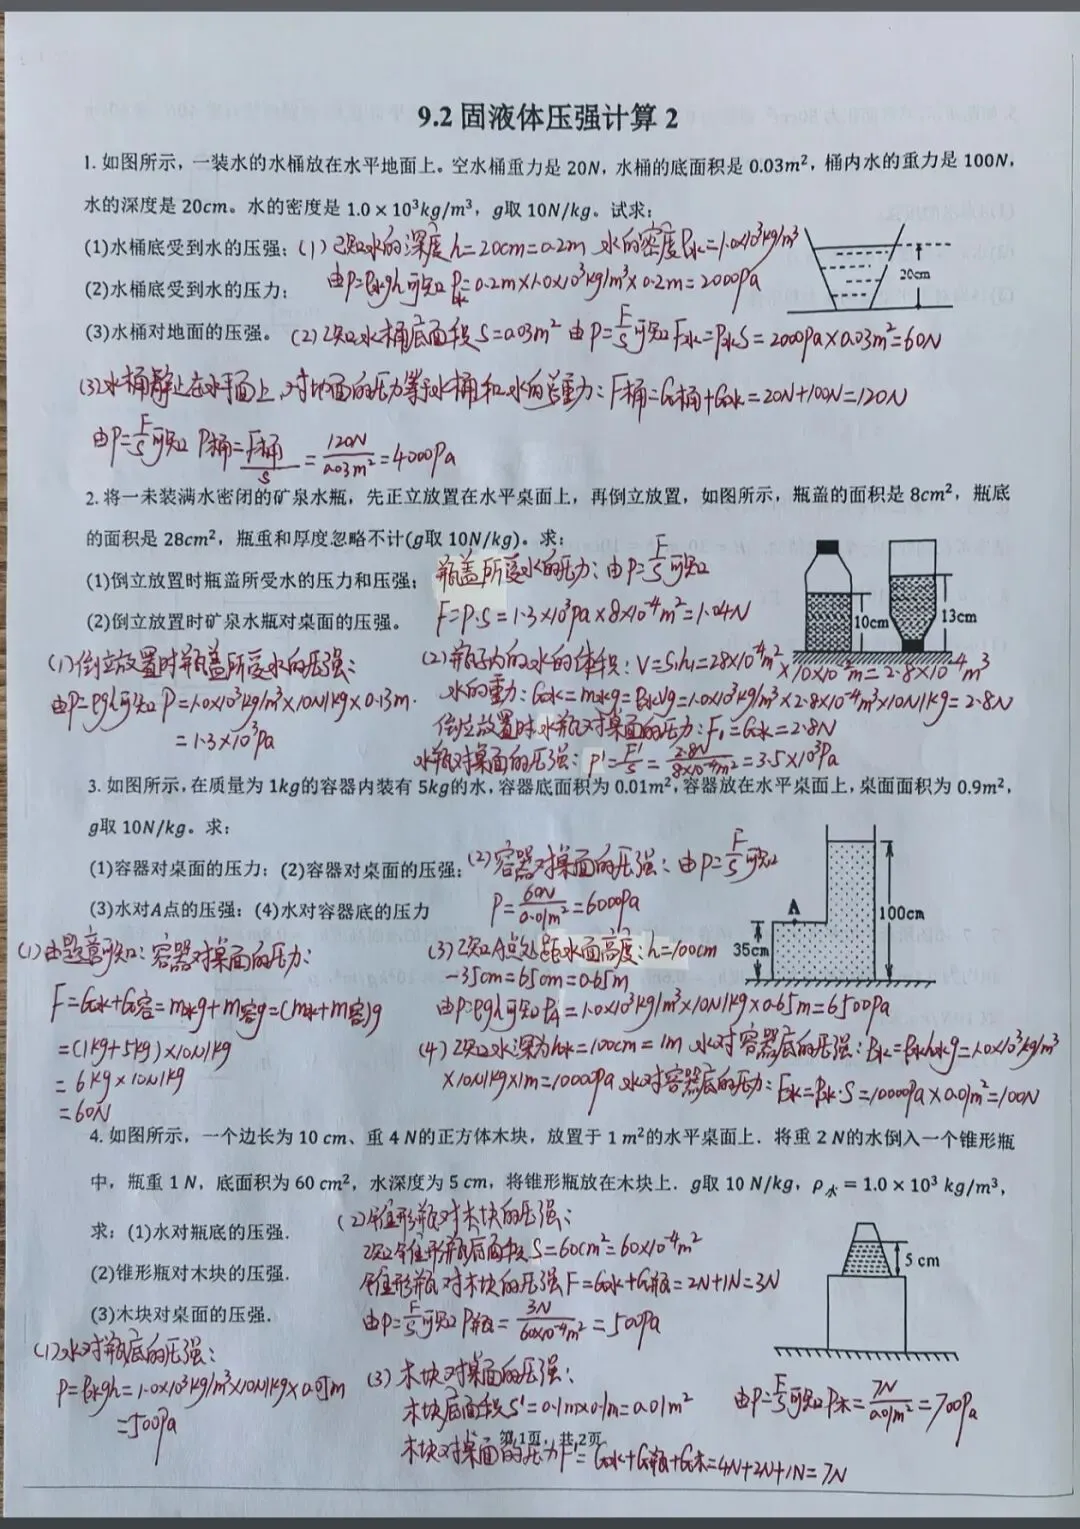 9.2 固液体压强计算 2
1. 如图所示，一装水的水桶放在水平地面上。空水桶重力是 20N，水桶的底面积是 0.03m²，桶内水的重力是 100N，
水的深度是 20cm。水的密度是 1.0 × 10³kg/m³，g取 10N/kg。试求：
(1)水桶底受到水的压强；(1) 已知水的深度 h=20cm=0.2m 水的密度ρ水=1.0×10³kg/m³
由P=ρ水gh可知 P水=0.2m×1.0×10³kg/m³×0.2m=2000Pa
(2)水桶底受到水的压力；
20cm
(3)水桶对地面的压强。(2) 已知水桶底面积S=0.03m² 由P=F/S可知F水=P水S=2000Pa×0.03m²=60N
(3)水桶静止在水平面上，对地面的压力等于水桶和水的总重力：F桶=G桶+G水=20N+100N=120N
由P=F/S可知 P桶=F桶/S=120N/0.03m²=4000Pa
2. 将一未装满水密闭的矿泉水瓶，先正立放置在水平桌面上，再倒立放置，如图所示，瓶盖的面积是 8cm²，瓶底
的面积是 28cm²，瓶重和厚度忽略不计(g取 10N/kg)。求：
(1)倒立放置时瓶盖所受水的压力和压强；
瓶盖所受水的压力：由P=F/S可知
F=P·S=1.3×10³Pa×8×10⁻⁴m²=1.04N
(2)倒立放置时矿泉水瓶对桌面的压强。
10cm
13cm
(1)倒立放置时瓶盖所受水的压强：
由P=ρgh可知 P=1.0×10³kg/m³×10N/kg×0.13m
=1.3×10³Pa
(2)瓶子内的水的体积：V=S₁h₁=28×10⁻⁴m²×10×10⁻²m=2.8×10⁻⁴m³
水的重力：G水=m水g=ρ水Vg=1.0×10³kg/m³×2.8×10⁻⁴m³×10N/kg=2.8N
倒立放置时水瓶对桌面的压力：F₁=G水=2.8N
水瓶对桌面的压强：P'=F'/S=2.8N/8×10⁻⁴m²=3.5×10³Pa
3. 如图所示，在质量为 1kg的容器内装有 5kg的水，容器底面积为 0.01m²，容器放在水平桌面上，桌面面积为 0.9m²，
g取 10N/kg。求：
(1)容器对桌面的压力；(2)容器对桌面的压强；
(2)容器对桌面的压强：由P=F/S可知
P=60N/0.01m²=6000Pa
(3)水对A点的压强；(4)水对容器底的压力
A
100cm
35cm
(1)由题意可知：容器对桌面的压力：
F=G水+G容=m水g+m容g=(m水+m容)g
=(1kg+5kg)×10N/kg
=6kg×10N/kg
=60N
(3)已知A点处距水面高度：h=100cm
-35cm=65cm=0.65m
由P=ρgh可知PA=1.0×10³kg/m³×10N/kg×0.65m=6500Pa
(4)已知水深为h水=100cm=1m 水对容器底的压强：P水=ρ水h水g=1.0×10³kg/m³
×10N/kg×1m=10000Pa 水对容器底的压力：F水=P水·S=10000Pa×0.01m²=100N
4. 如图所示，一个边长为 10 cm、重 4 N的正方体木块，放置于 1 m²的水平桌面上．将重 2 N的水倒入一个锥形瓶
中，瓶重 1 N，底面积为 60 cm²，水深度为 5 cm，将锥形瓶放在木块上．g取 10 N/kg，ρ水 = 1.0 × 10³ kg/m³，
求：(1)水对瓶底的压强．
(2)锥形瓶对木块的压强．
(3)木块对桌面的压强．
(2)锥形瓶对木块的压强：
已知锥形瓶底面积S=60cm²=60×10⁻⁴m²
锥形瓶对木块的压强F=G水+G瓶=2N+1N=3N
由P=F/S可知P瓶=3N/60×10⁻⁴m²=500Pa
5 cm
(1)水对瓶底的压强：
P=ρ水gh=1.0×10³kg/m³×10N/kg×0.05m
=500Pa
(3)木块对桌面的压强：
木块底面积S'=0.1m×0.1m=0.01m²
木块对桌面的压力F'=G水+G瓶+G木=4N+2N+1N=7N
由P=F/S可知P木=7N/0.01m²=700Pa
第 1页，共 2页